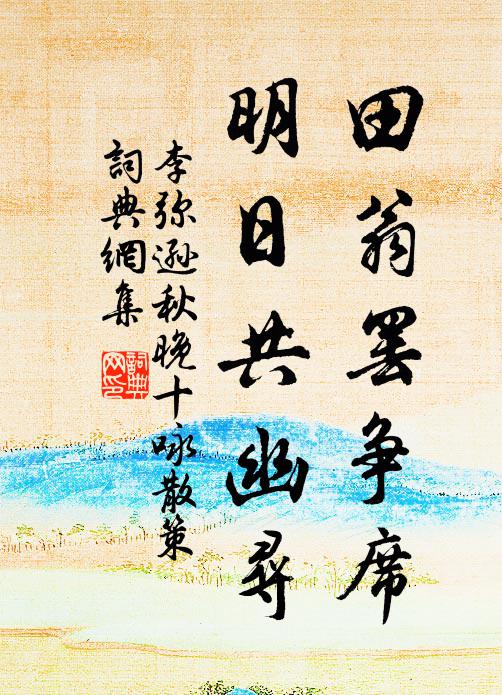 田翁罢争席
明日共幽尋
李弥遜秋晚十咏散策
詞典網集
詞典網印